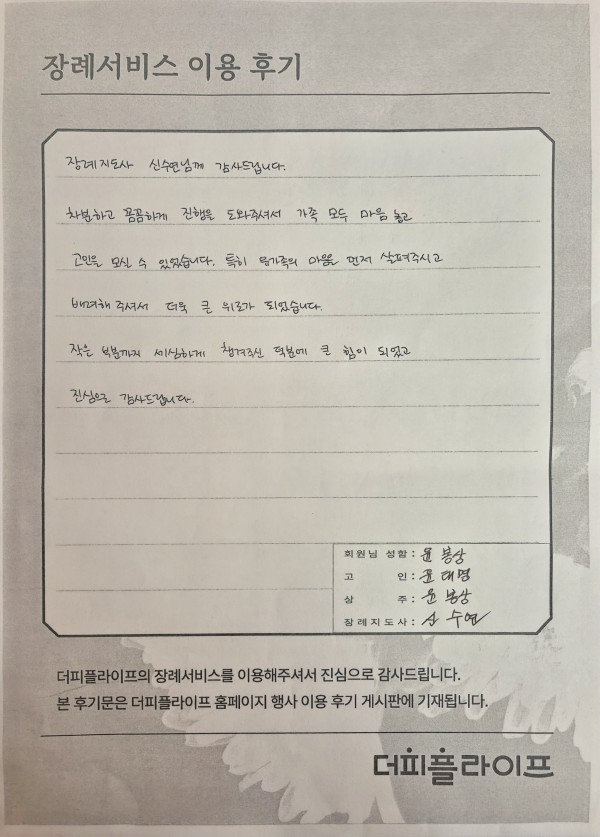 장례서비스 이용 후기
장례지도사 신수연님께 감사드립니다.
차분하고 꼼꼼하게 진행을 도와주셔서 가족 모두 마음 놓고
고인을 모실 수 있었습니다. 특히 유가족의 마음을 먼저 살펴주시고
배려해 주셔서 더욱 큰 위로가 되었습니다.
작은 부분까지 세심하게 챙겨주신 덕분에 큰 힘이 되었고
진심으로 감사드립니다.
회원님 성함 : 윤봉상
고 인 : 윤태명
상 주 : 윤봉상
장례지도사 : 신수연
더피플라이프의 장례서비스를 이용해주셔서 진심으로 감사드립니다.
본 후기문은 더피플라이프 홈페이지 행사 이용 후기 게시판에 기재됩니다.
더피플라이프